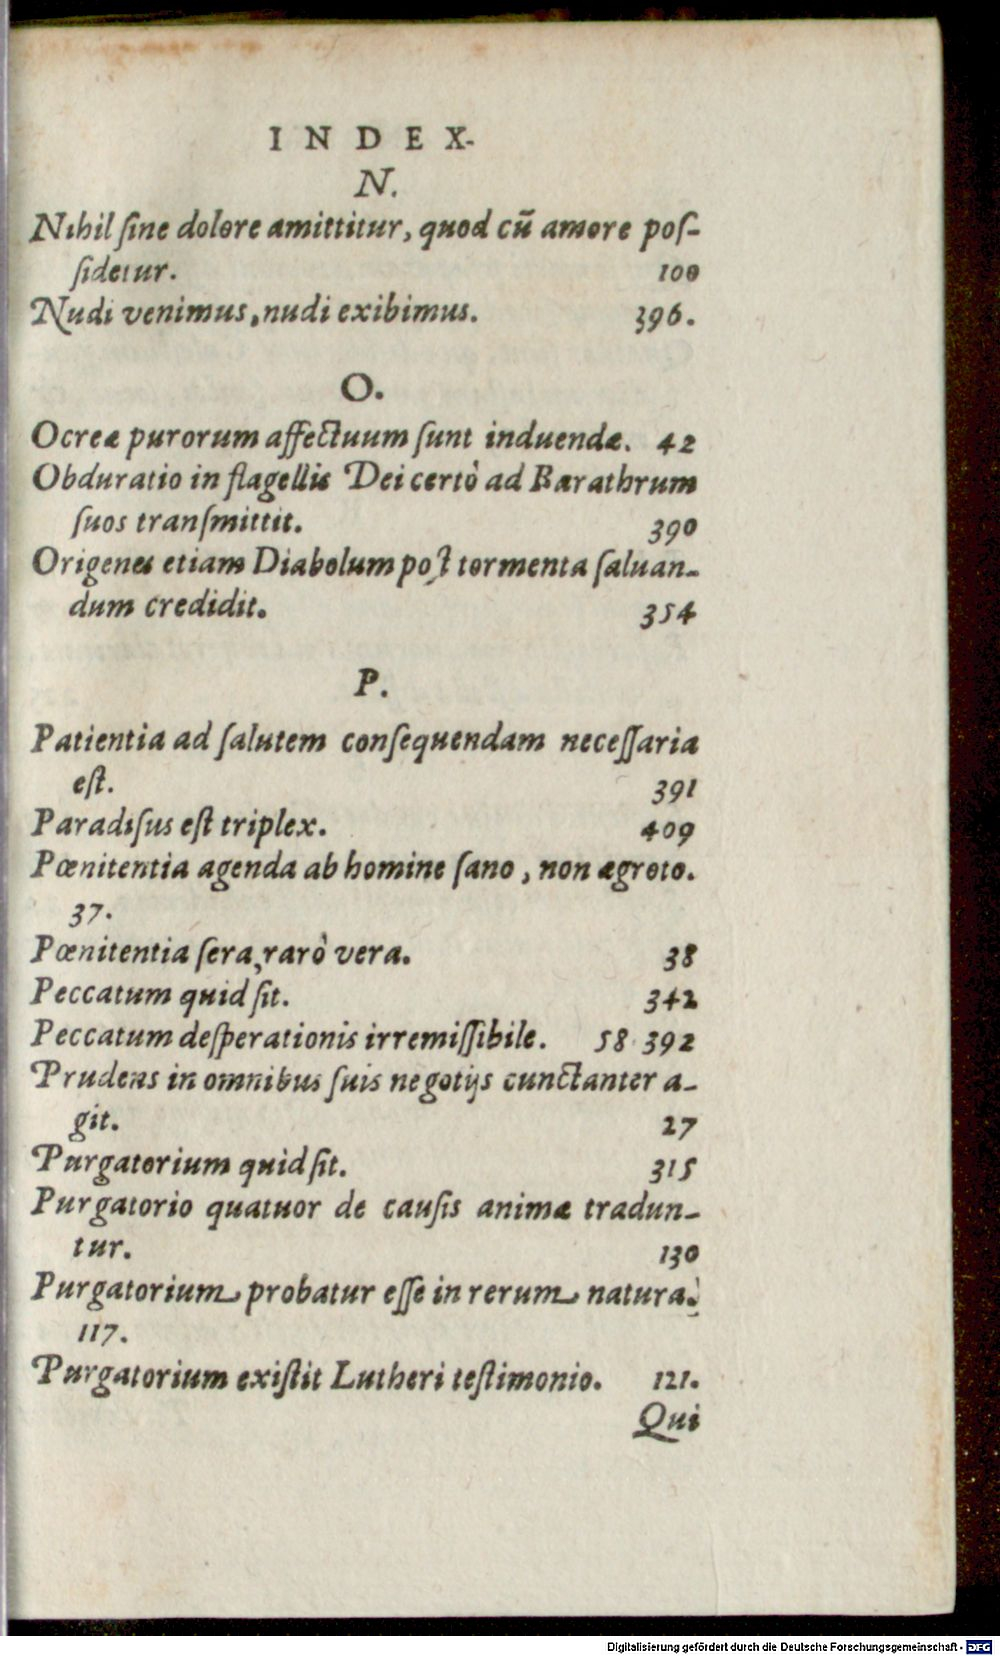 INDEX.
N.
Nihil ſine dolore amittitur, quod cū amore poſ-
ſidetur. 100
Nudi venimus, nudi exibimus. 396.
O.
Ocreæ purorum affectuum ſunt induendæ. 42
Obduratio in flagellis Dei certò ad Barathrum
ſuos tranſmittit. 390
Origenes etiam Diabolum poſt tormenta ſaluan-
dum credidit. 354
P.
Patientia ad ſalutem conſequendam neceſſaria
eſt. 391
Paradiſus eſt triplex. 409
Pœnitentia agenda ab homine ſano, non ægroto.
37.
Pœnitentia ſera, rarò vera. 38
Peccatum quid ſit. 342
Peccatum deſperationis irremiſſibile. 58. 392
Prudens in omnibus ſuis negotijs cunctanter a-
git. 27
Purgatorium quid ſit. 315
Purgatorio quatuor de cauſis animæ tradun-
tur. 130
Purgatorium probatur eſſe in rerum natura.
117.
Purgatorium exiſtit Lutheri teſtimonio. 121.
Qui
Digitalisierung gefördert durch die Deutsche Forschungsgemeinschaft - DFG